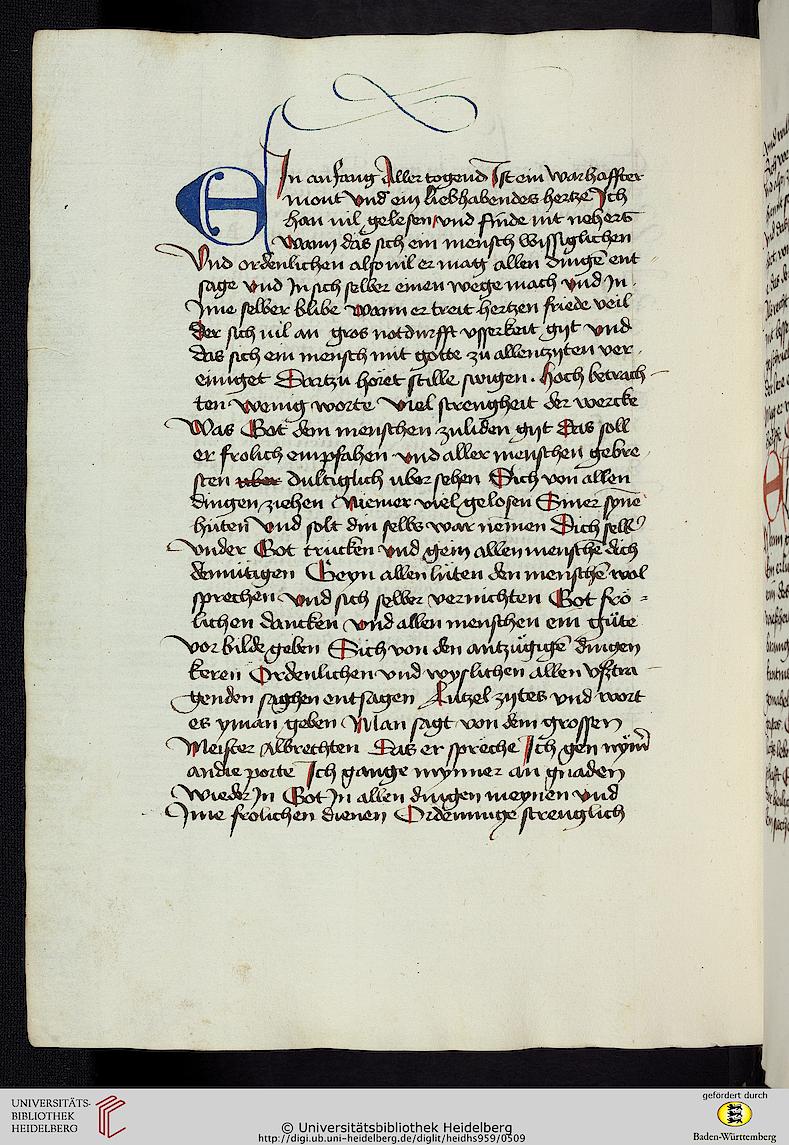 EIn anfang Aller togend Ist ein warhaffter
mont vnd ein liebhabendes hertze Ich
han uil gelesen vnd finde nit nehers
wann das sich ein mensch wissiglichen
Vnd ordenlichen also uil er mag allen dingē ent
sage vnd In sich selber einen wege mach vnd In
Ime selber blibe wann er treit hertzen friede veil
der sich uil an gros notdurfft vsserkeit git vnd
das sich ein mensch mit gotte zu allentzyten ver
einiget Dartzu horet stille swigen. Hoch betrach
ten wenig worte viel strengheit der wercke
Was Got dem menschen zuliden git Das soll
er frolich empfahen vnd aller menschen gebre
sten uber dultiglich uber sehen Sich von allen
dingen ziehen Niemer viel gelosen Siner synē
hüten Vnd solt din selbs war nemen Dich selb
vnder Got trucken vnd gein allen menschē dich
demütigen Geyn allen lüten den menschē wol
sprechen vnd sich selber vernichten Got frö =
lichen dancken vnd allen menschen ein güte
vor bilde geben Sich von den antzügigē dingen
keren Ordenlichen vnd wyslichen allen vsztra
genden saghen entsagen Lutzel zytes vnd wort
es yman geben Man sagt von dem grossen
Meister Albrechten Das er spreche Ich gen nym
an die porte Ich gange mynner an gnaden
Wieder In Got In allen dingen meynen vnd
Ime frolichen dienen Ordenunge strenglich
UNIVERSITÄTS-
BIBLIOTHEK
HEIDELBERG
© Universitätsbibliothek Heidelberg
http://digi.ub.uni-heidelberg.de/diglit/heidhs959/0509
gefördert durch
Baden-Württemberg